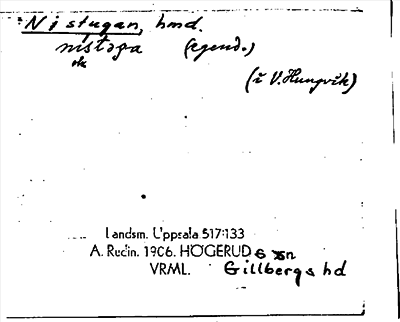 Nistugan, hmd.
nístoga (egend.)
(i V. Hungvik)
Landsm. Uppsala 517:133
A. Redin. 1906. HÖGERUDS sn
VRML. Gillbergs hd